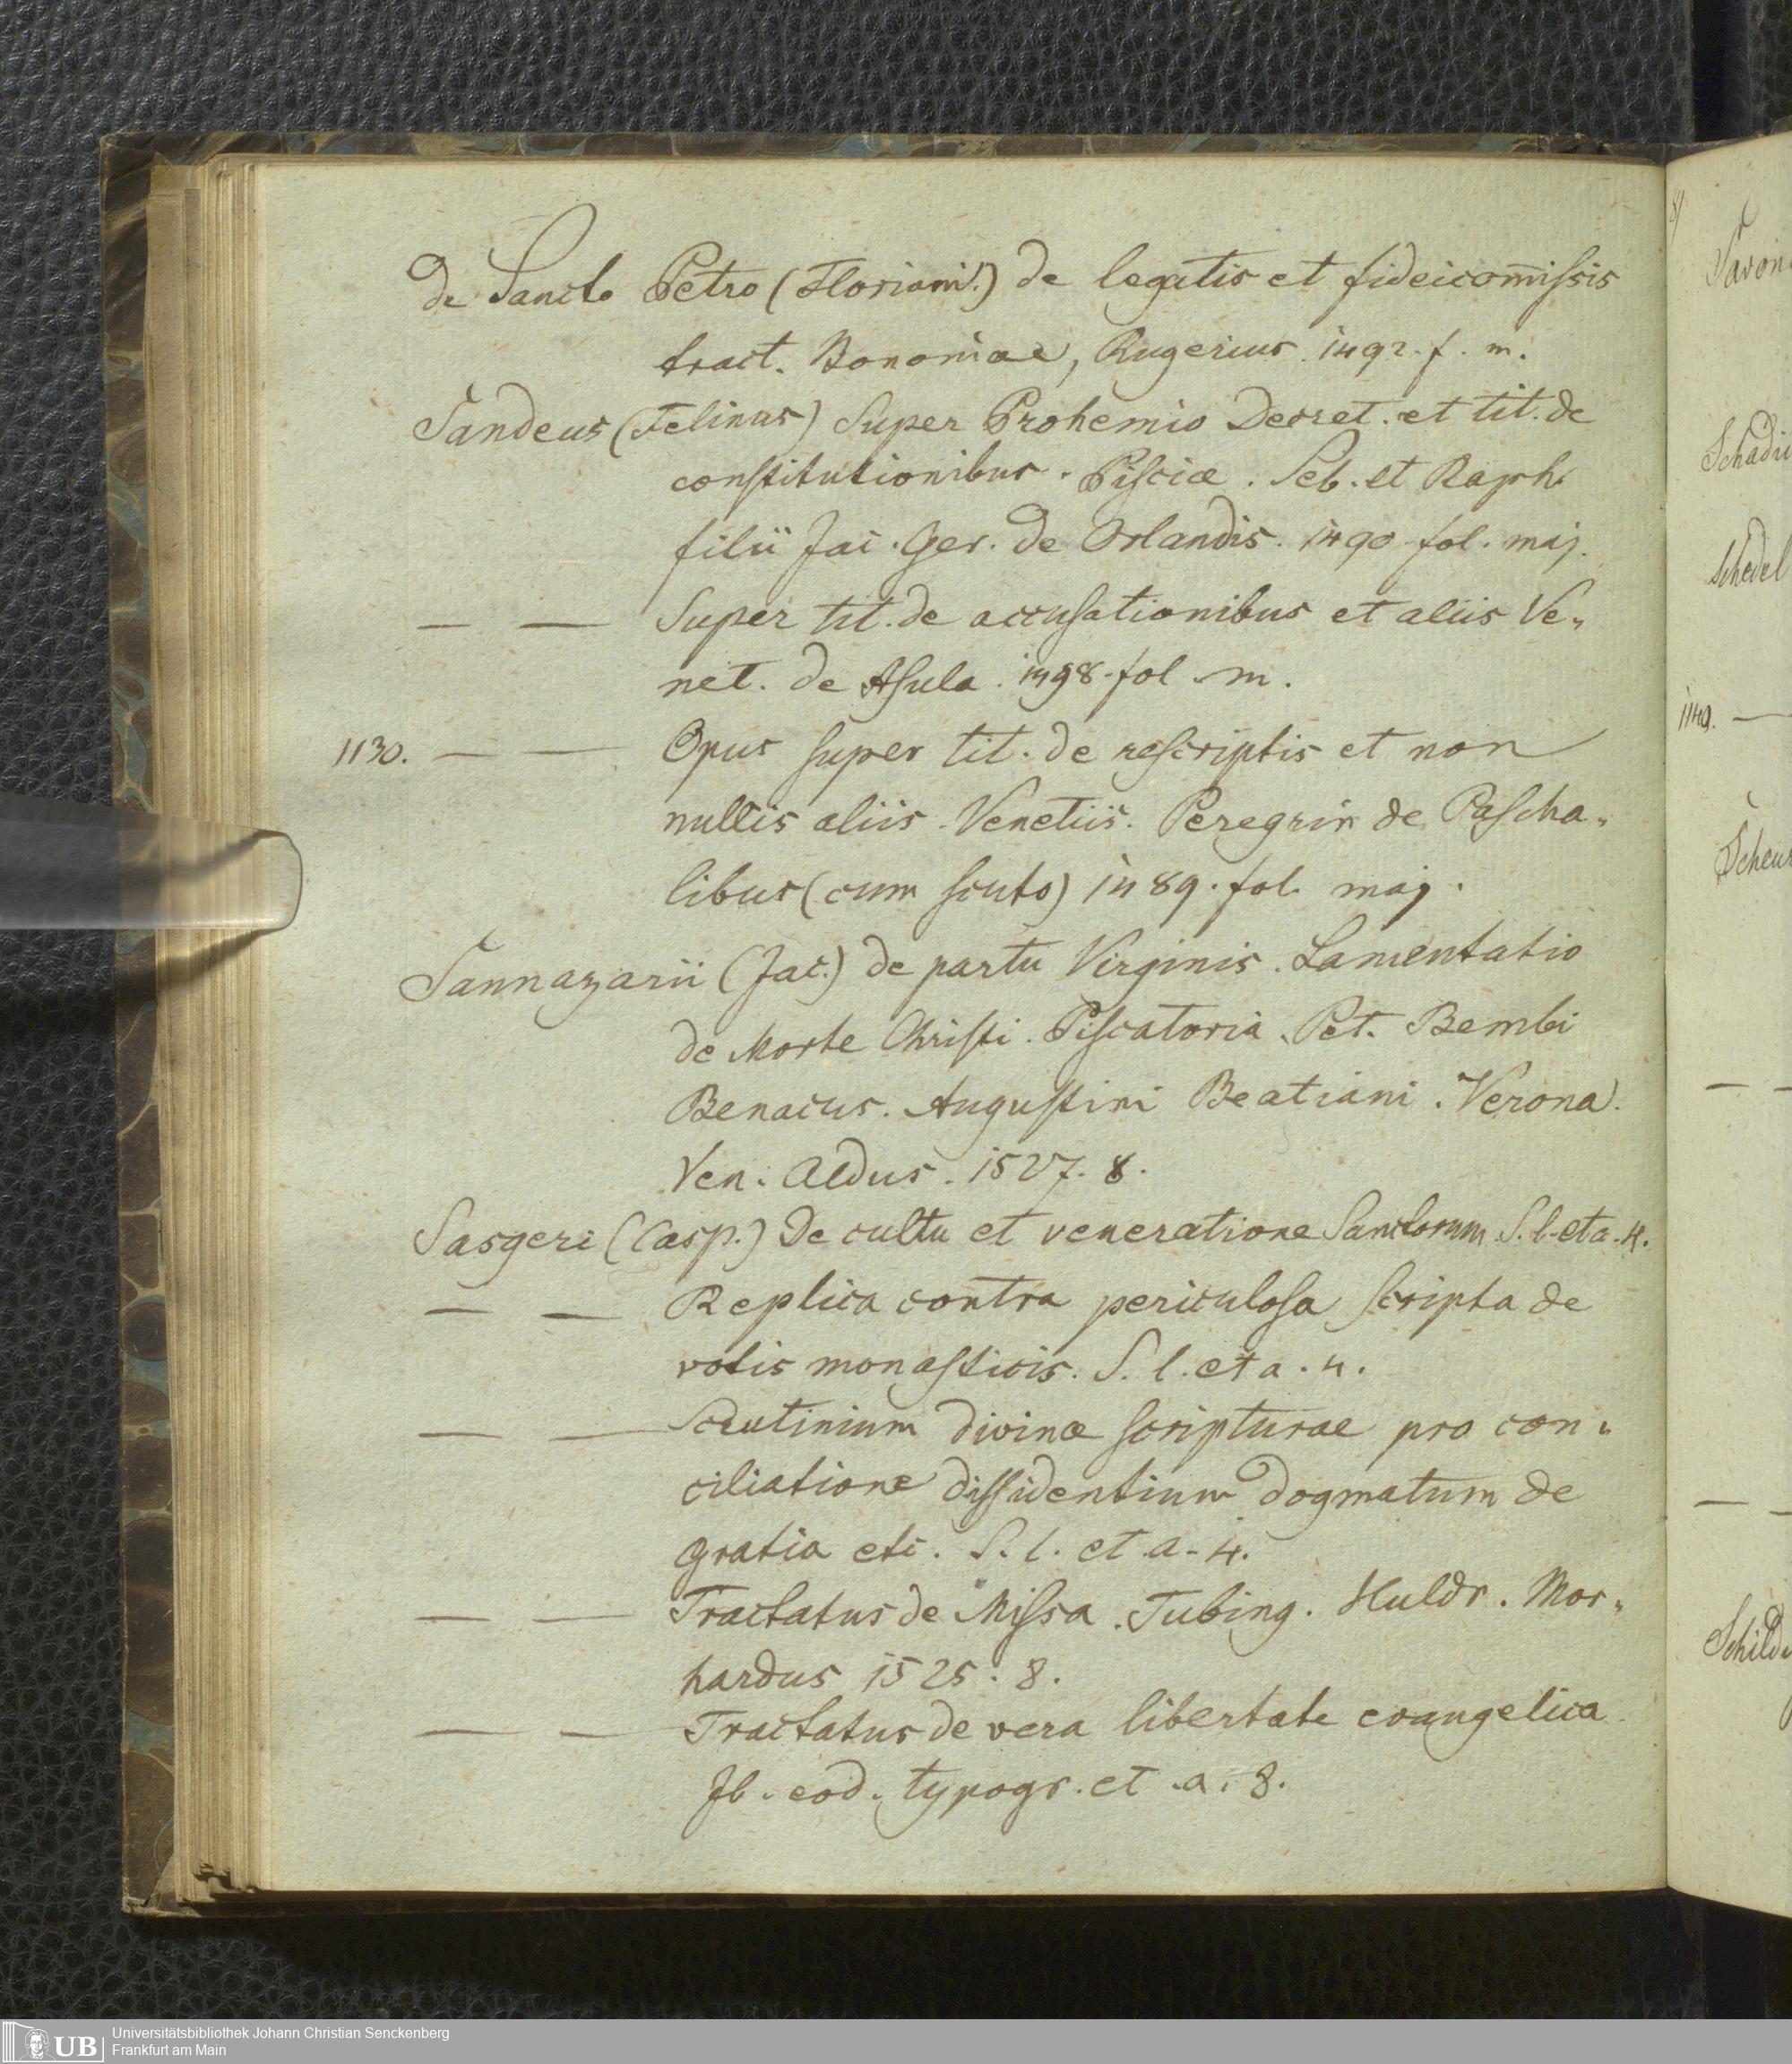 de Sancto Petro (Floriani.) de legatis et fideicom̅iſsis
tract. Bononiae, Rugerius. 1492. f. m.
Sandeus (Felinus) Super Prohemio Decret. et tit. de
conſtitutionibus. Piſciæ. Seb. et Raph.
filii Jac. Ger. de Orlandis. 1490 fol. maj.
— — Super tit. de accuſationibus et aliis Ve„
net. de Aſula. 1498. fol. m.
1130. — — Opus ſuper tit. de reſcriptis et non
nullis aliis. Venetiis. Peregrin de Paſcha„
libus (cum ſcuto) 1489. fol. maj.
Sannazarii (Jac.) de partu Virginis. Lamentatio
de Morte Chriſti. Piſcatoria. Pet. Bembi
Benacus. Auguſtini Beatiani. Verona.
Ven. Aldus. 1527. 8.
Sasgeri (Casp.) De cultu et veneratione Sanctorum S. l. et a. 4.
— — Replica contra periculoſa ſcripta de
votis monaſticis. S. l. et a. 4.
— — Scrutinium divinæ ſcripturae pro con„
ciliatione diſſidentium dogmatum de
gratia etc. S. l. et a. 4.
— — Tractatus de Miſsa. Tubing. Huldr. Mor„
hardus 1525. 8.
— — Tractatus de vera libertate evangelica.
Jb. eod. typogr. et a. 8.
Schadi
Schedel
1140. —
— —
— —
Universitätsbibliothek Johann Christian Senckenberg
UB
Frankfurt am Main